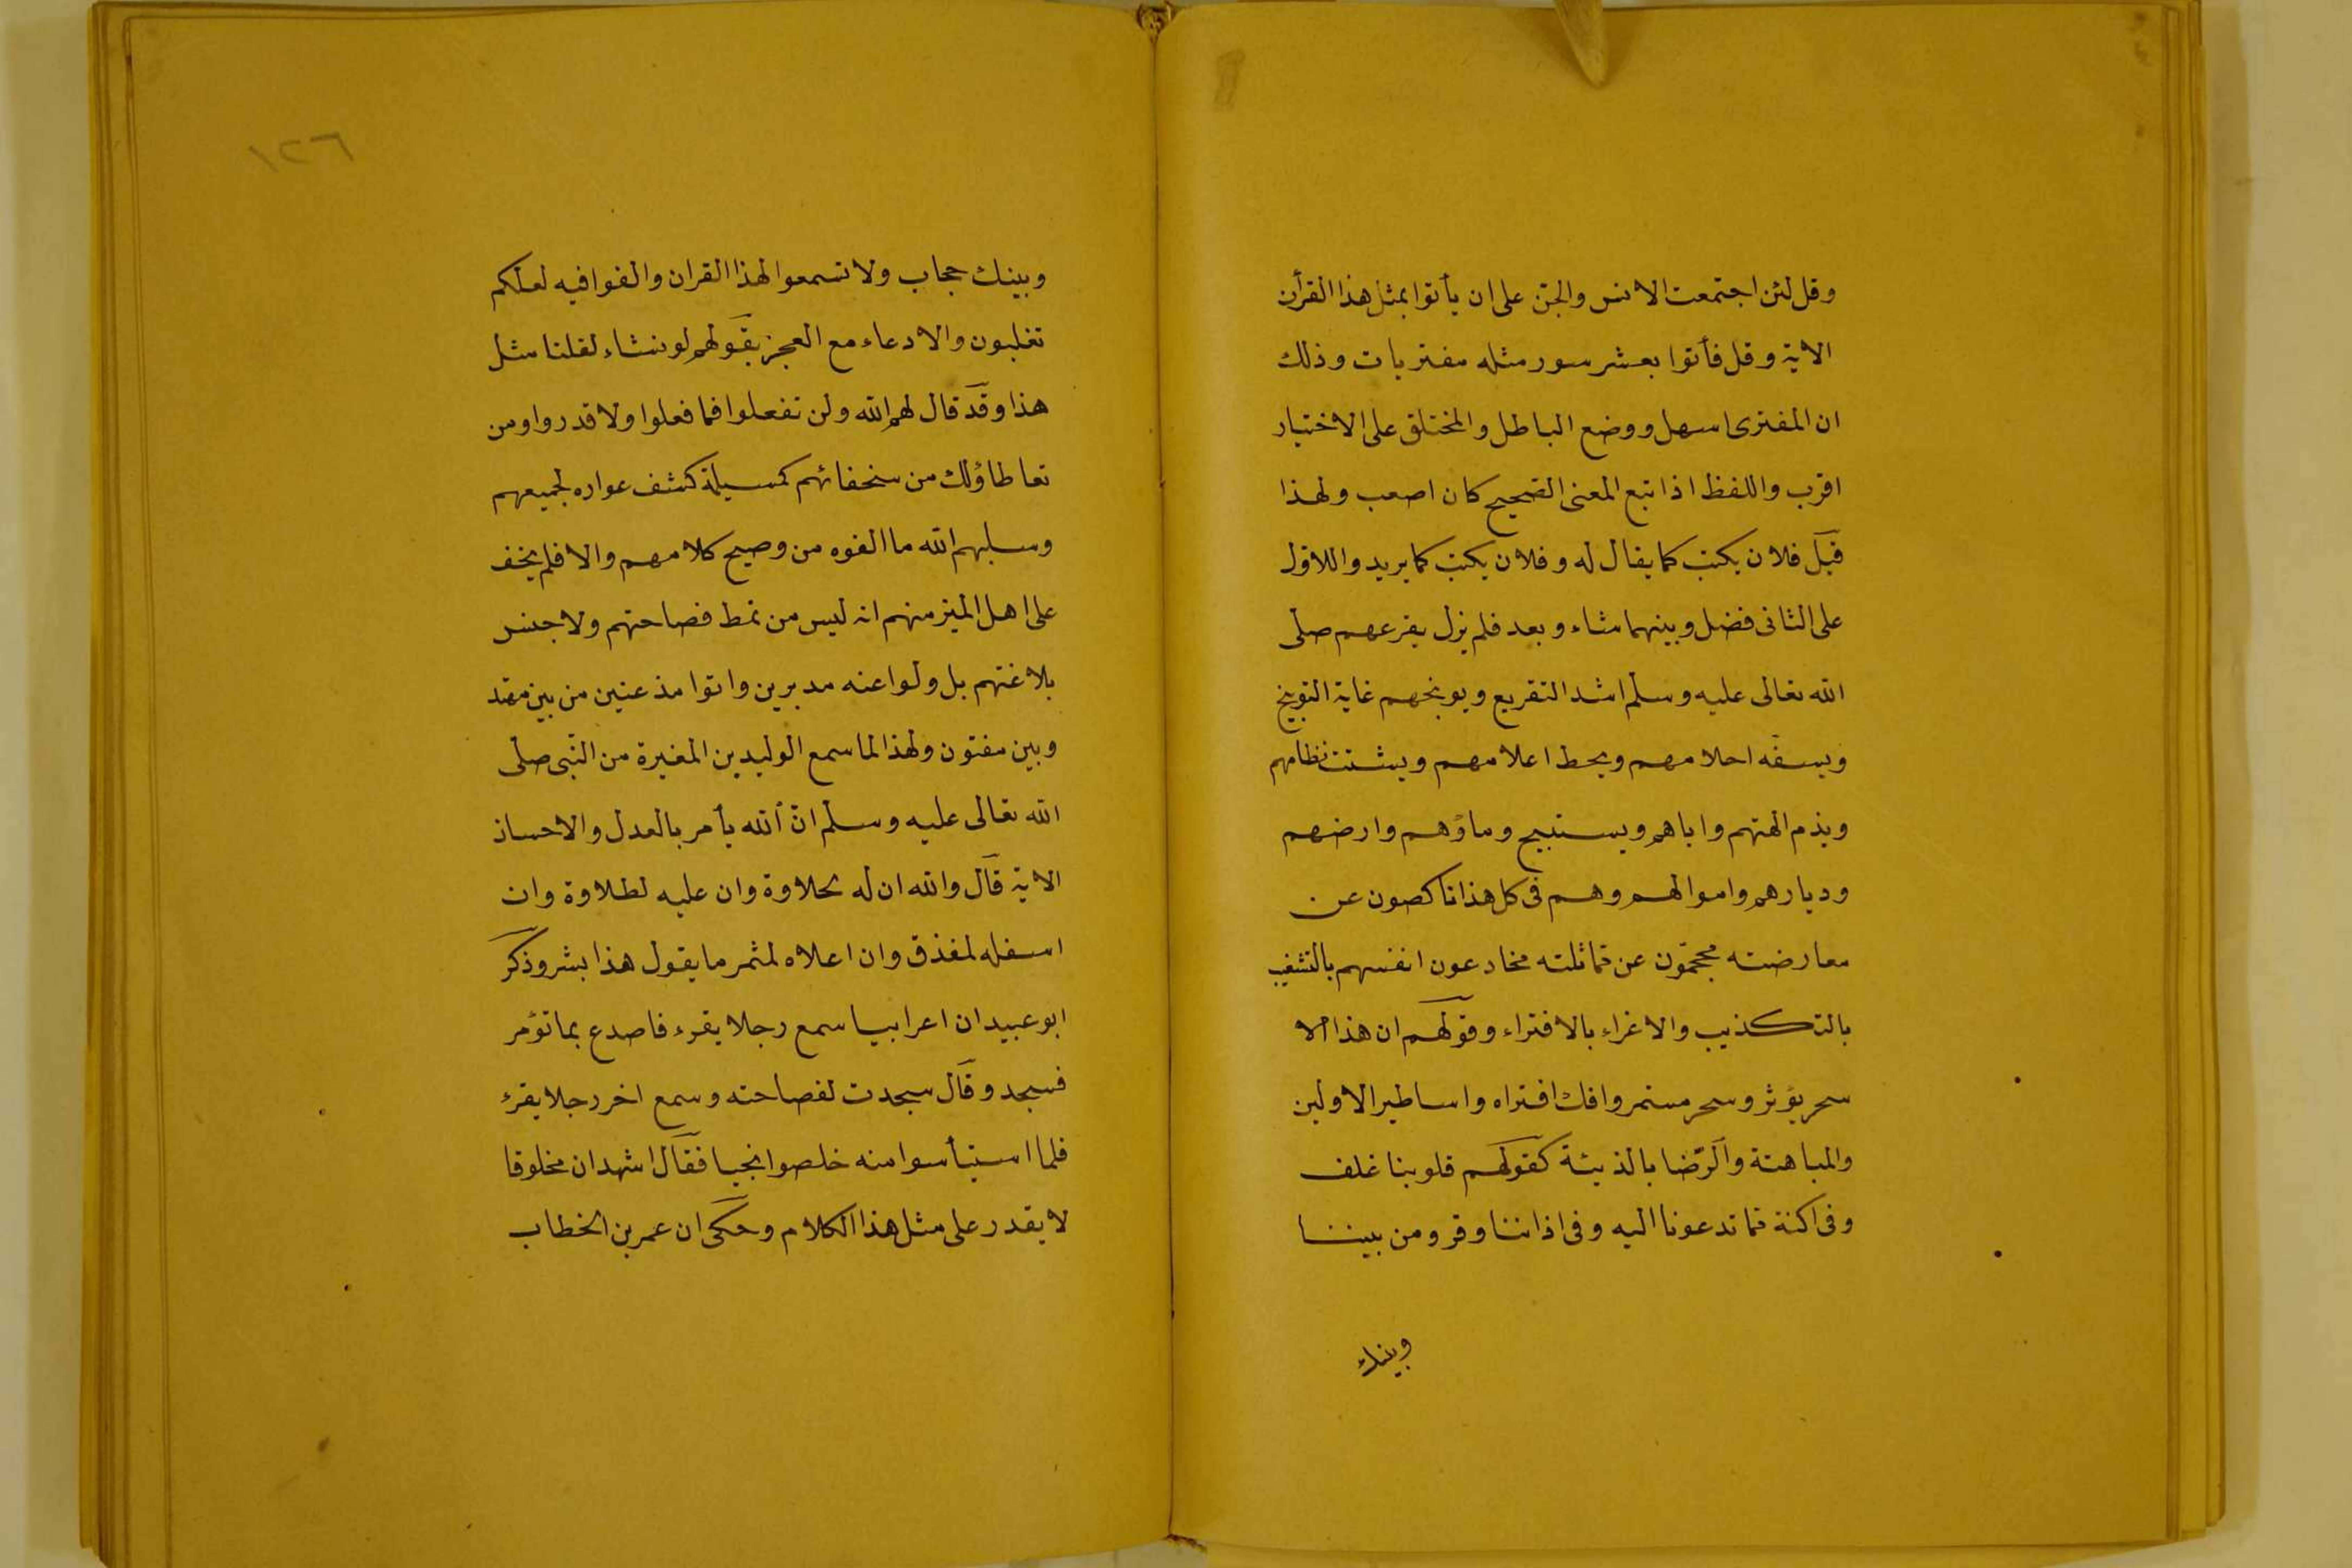 وقل لئن اجتمعت الانس والجن على ان يأتوا بمثل هذا القرأن
الاية وقل فأتوا بعشر سور مثله مفتريات وذلك
ان المفترى اسهل ووضع الباطل والمختلق على الاختيار
اقرب واللفظ اذا تبع المعنى الصحيح كان اصعب ولهذا
قيل فلان يكتب كما يقال له وفلان يكتب كما يريد واللاول
على الثانى فضل وبينهما شاء وبعد فلم يزل يقرعهم صلى
الله تعالى عليه وسلم اشد التقريع ويوبخهم غاية التوبيخ
ويسفه احلامهم ويحط اعلامهم ويشتت نظامهم
ويذم الهتهم واباهم ويستبيح وماؤهم وارضهم
وديارهم واموالهم وهم فى كل هذا ناكصون عن
معارضته محجمون عن مماثلته مخادعون انفسهم بالتشغيب
بالتكذيب والاغراء بالافتراء وقولهم ان هذا الا
سحر يؤثر وسحر مستمر وافك افتراه واساطير الاولين
والمباهتة والرضا بالذيئة كقولهم قلوبنا غلف
وفى اكنة مما تدعونا اليه وفى اذاننا وقر ومن بيننا
وبينك
١٢٦
وبينك حجاب ولا تسمعوا لهذا القران والغوا فيه لعلكم
تغلبون والادعاء مع العجز بقولهم لو نشاء لقلنا مثل
هذا وقد قال لهم الله ولن تفعلوا فما فعلوا ولا قدروا ومن
تعاطاؤلك من سخفائهم كمسيلة كشف عواره لجميعهم
وسلبهم الله ما الفوه من وصيح كلامهم والا فلم يخف
على اهل الميز منهم انه ليس من نمط فصاحتهم ولا جنس
بلاغتهم بل ولوا عنه مدبرين واتوا مذعنين من بين مهتد
وبين مفتون ولهذا لما سمع الوليد بن المغيرة من النبى صلى
الله تعالى عليه وسلم ان الله يأمر بالعدل والاحسان
الاية قال والله ان له لحلاوة وان عليه لطلاوة وان
اسفله لمغذق وان اعلاه لمثمر ما يقول هذا بشر وذكر
ابو عبيد ان اعرابيا سمع رجلا يقرء فاصدع بما تؤمر
فسجد وقال سجدت لفصاحته وسمع اخر رجلا يقرء
فلما استيأسوا منه خلصوا نجيا فقال اشهد ان مخلوقا
لا يقدر على مثل هذا الكلام وحكى ان عمر بن الخطاب